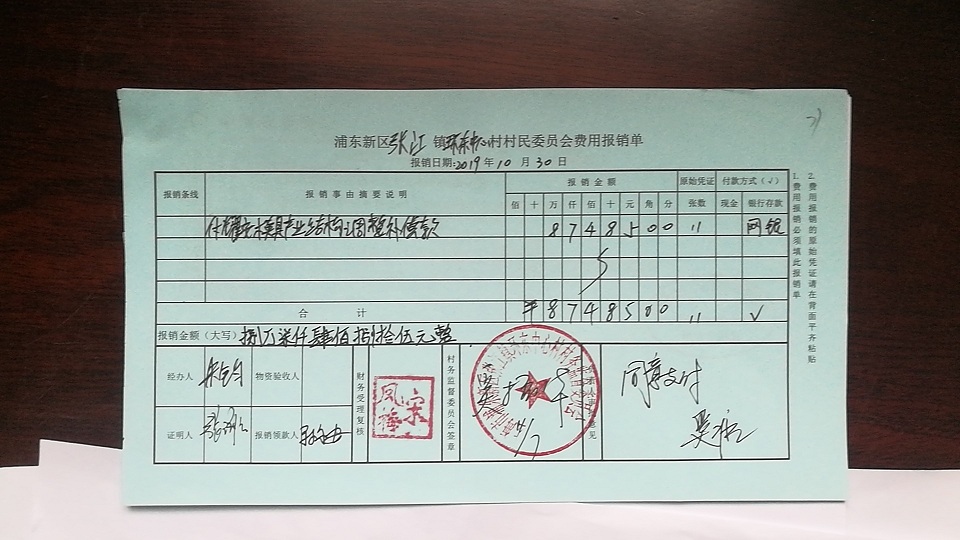 浦东新区张江镇环东中心村村民委员会费用报销单
报销日期:2019年10月30日
报销条线 报销事由摘要说明 报销金额 原始凭证 付款方式(√)
佰 十 万 仟 佰 十 元 角 分 张数 现金 银行存款
产业结构调整补偿款 8 7 4 8 5 0 0 网银
合计 ¥ 8 7 4 8 5 0 0 √
报销金额(大写) 捌万柒仟肆佰捌拾伍元整
经办人 物资验收人
证明人 报销领款人
财务受理复核
宋凤梅
村务监督委员会签章
同意支付
1.费用报销必须填此报销单
2.费用报销的原始凭证请在背面平齐粘贴